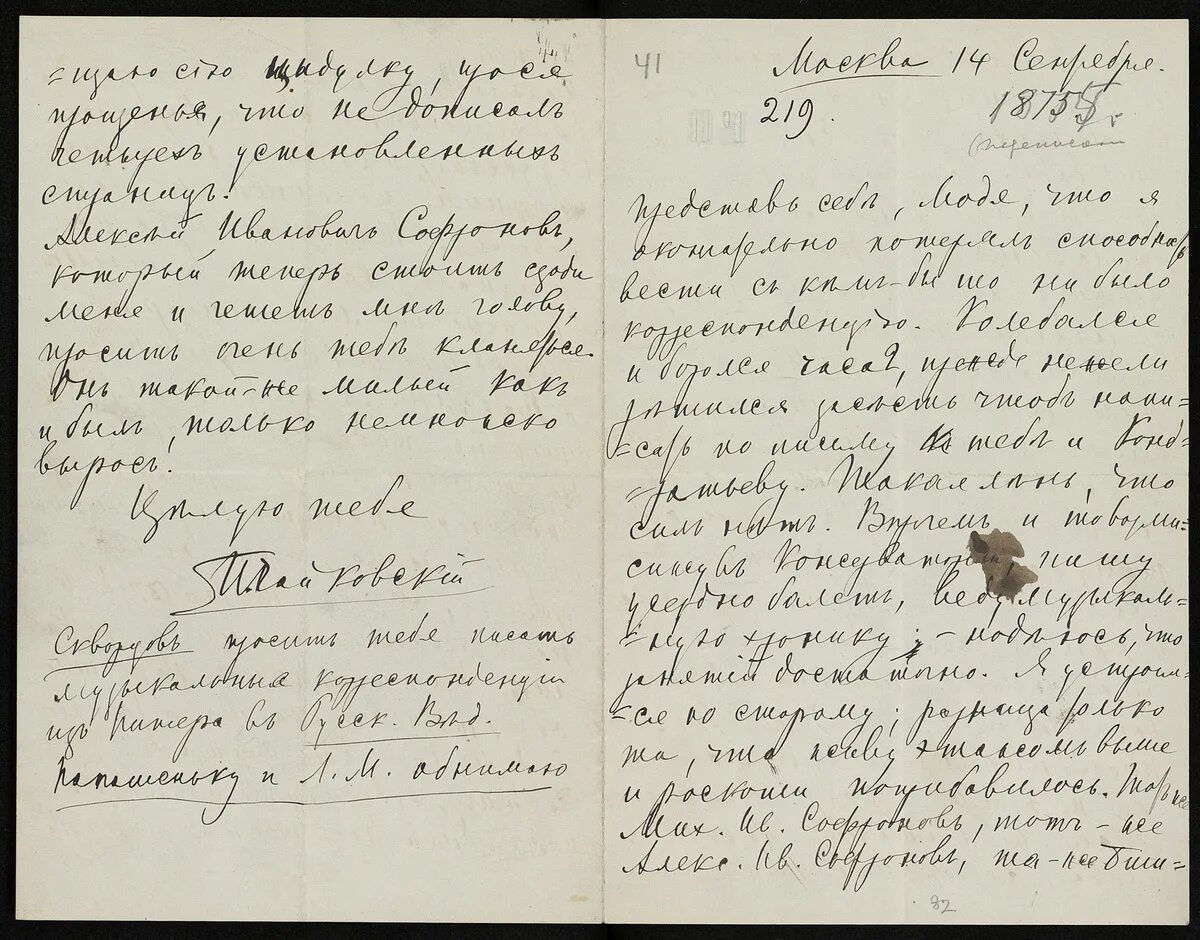 =щаю сію цидулку, прося
прощенья, что не дописалъ
четырехъ установленныхъ
страницъ.
Алексѣй Ивановичъ Софроновъ,
который теперь стоитъ сзади
меня и чешетъ мнѣ голову,
проситъ очень тебѣ кланяться.
Онъ такой-же милый какъ
и былъ, только немножко
выросъ.
Цѣлую тебя
П.Чайковскій
Скворцовъ проситъ тебя писать
музыкальныя корреспонденціи
изъ Питера въ Русск. Вѣд.
Папашеньку и Л. М. обнимаю
41
Москва 14 Сентября.
219.
1875 г
Представь себѣ, Модя, что я
окончательно потерялъ способность
вести съ кѣмъ-бы то ни было
корреспонденцію. Колебался
и боролся часа 2, прежде нежели
рѣшился засѣсть чтобъ напи=
=сать по письму къ тебѣ и Конд=
=ратьеву. Такая лѣнь, что
силъ нѣтъ. Впрочемъ и
Консерваторіи, пишу
усердно балетъ, веду музыкаль=
=ную хронику; – надѣюсь, что
занятій достаточно. Я устроил=
=ся по старому; разница только
та, что живу этажомъ выше
и роскоши поприбавилось. Тотъ же
Мих. Ив. Софроновъ, тотъ-же
Алекс. Ив. Софроновъ, та-же Биш=
32